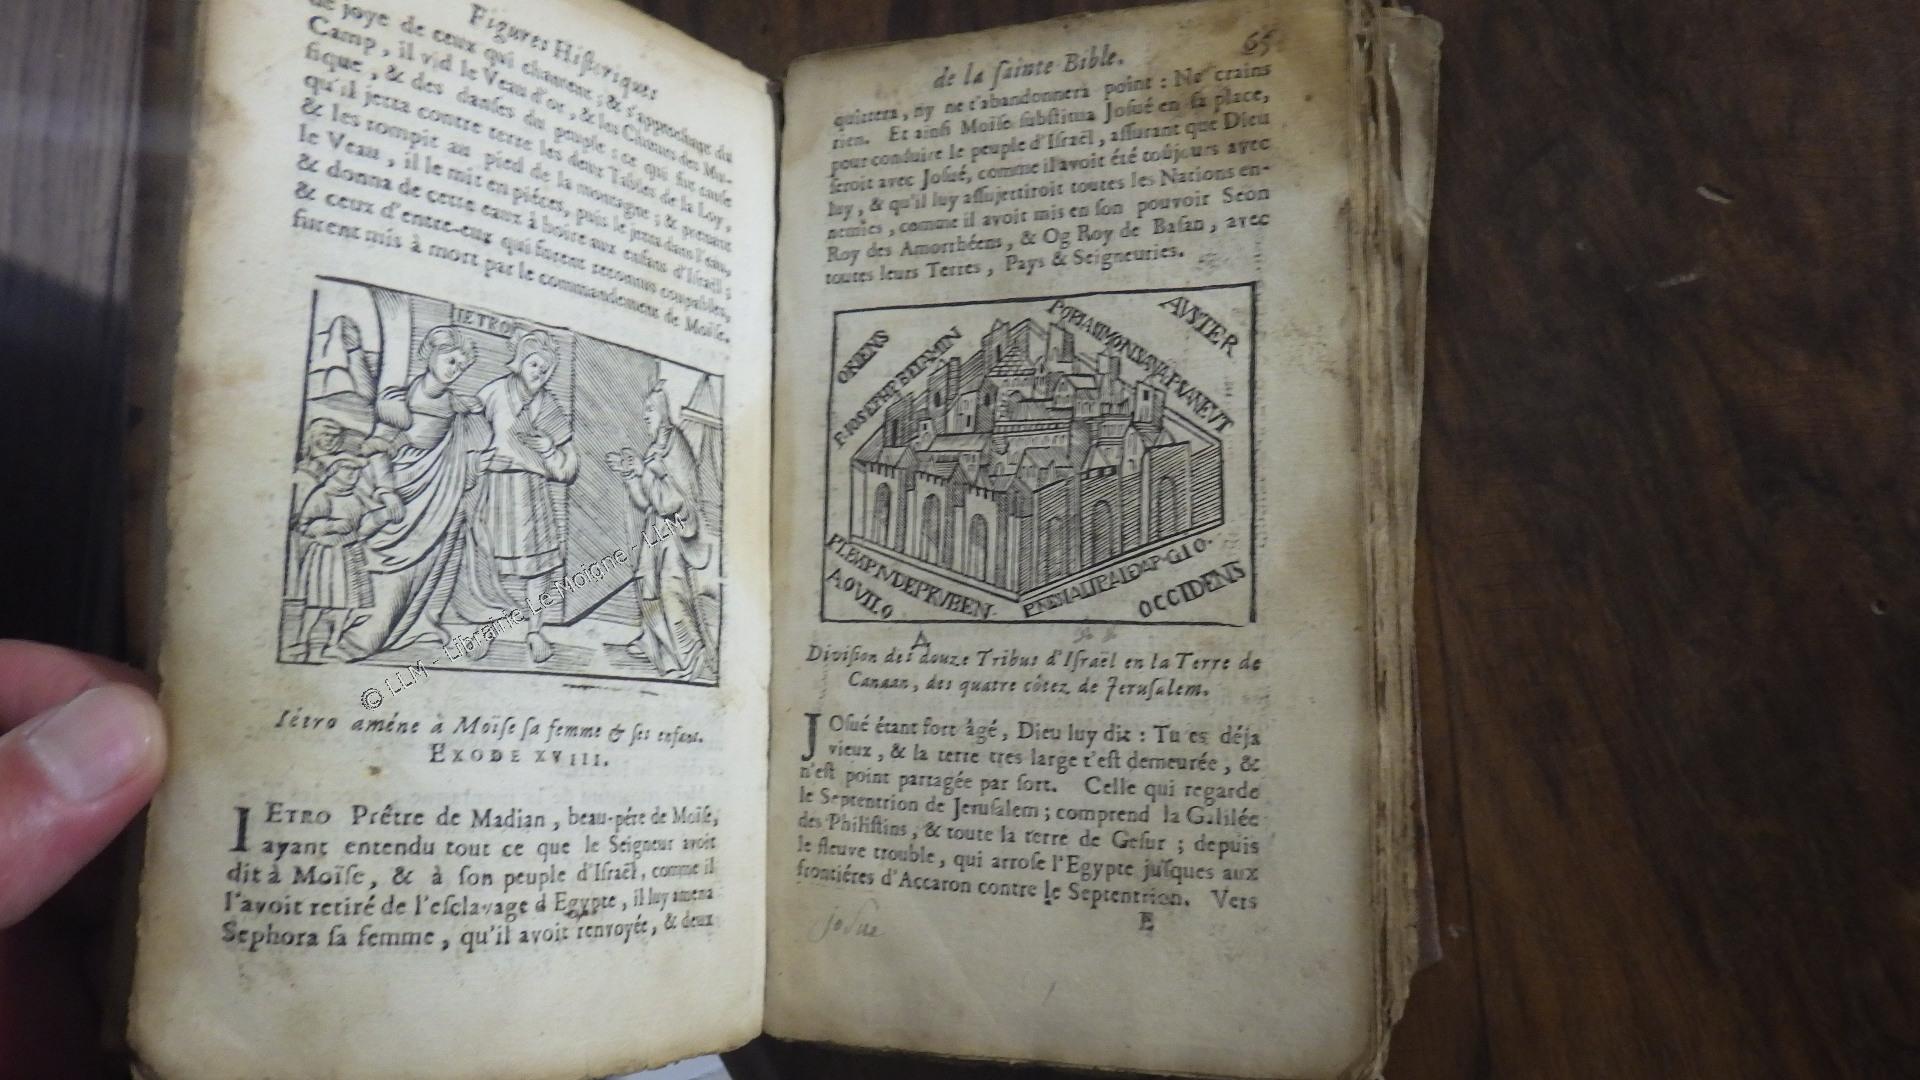 Figures Hiſtoriques
de joye de ceux qui chantent ; & s'approchant du
Camp, il vid le Veau d'or, & les Chœurs des Mu-
ſique, & des danſes du peuple : ce qui fut cauſe
qu'il jetta contre terre les deux Tables de la Loy,
& les rompit au pied de la montagne ; & prenant
le Veau, il le mit en piéces, puis le jetta dans l'eau,
& donna de cette eau à boire aux enfans d'Iſraël ;
& ceux d'entre-eux qui furent reconnus coupables,
furent mis à mort par le commandement de Moïſe.
IETRO
© LLM - Librairie Le Moigne - LLM
Iétro améne à Moïſe ſa femme & ſes enfans.
EXODE XVIII.
IETRO Prêtre de Madian, beau-pére de Moïſe,
ayant entendu tout ce que le Seigneur avoit
dit à Moïſe, & à ſon peuple d'Iſraël, comme il
l'avoit retiré de l'eſclavage d'Egypte, il luy amena
Sephora ſa femme, qu'il avoit renvoyée, & deux
de la ſainte Bible. 65
quittera, ny ne t'abandonnera point : Ne crains
rien. Et ainſi Moïſe ſubſtitua Joſué en ſa place,
pour conduire le peuple d'Iſraël, aſſurant que Dieu
ſeroit avec Joſué, comme il avoit été toûjours avec
luy, & qu'il luy aſſujettiroit toutes les Nations en-
nemies, comme il avoit mis en ſon pouvoir Seon
Roy des Amorrhéens, & Og Roy de Baſan, avec
toutes leurs Terres, Pays & Seigneuries.
ORIENS
AVSTER
P. IOSEPH P BEIAMIN
AQVILO
OCCIDENS
A
Diviſion des douze Tribus d'Iſraël en la Terre de
Canaan, des quatre côtez de Jeruſalem.
JOſué étant fort âgé, Dieu luy dit : Tu es déja
vieux, & la terre tres large t'eſt demeurée, &
n'eſt point partagée par ſort. Celle qui regarde
le Septentrion de Jeruſalem ; comprend la Galilée
des Philiſtins, & toute la terre de Geſur ; depuis
le fleuve trouble, qui arroſe l'Egypte juſques aux
frontiéres d'Accaron contre le Septentrion. Vers
E
joſue